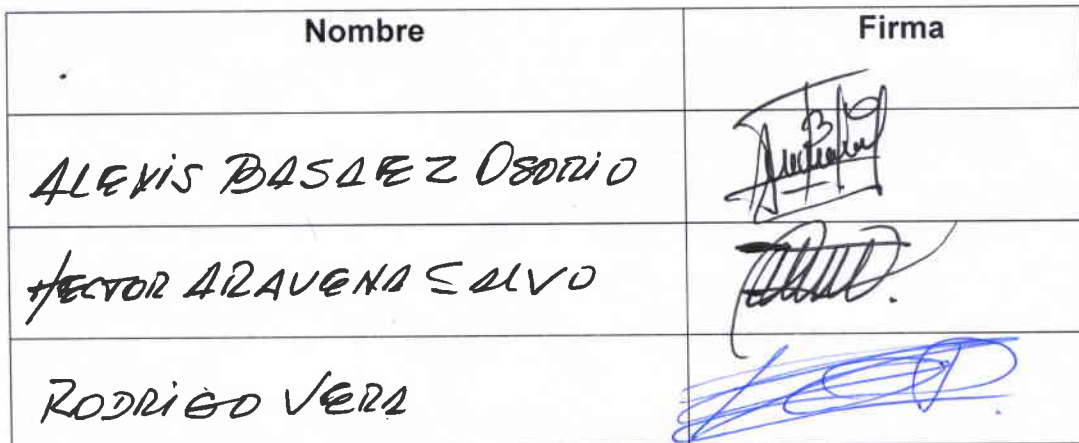 Nombre Firma
ALEXIS BASAEZ OSORIO
HECTOR ARAVENA SALVO
RODRIGO VERA